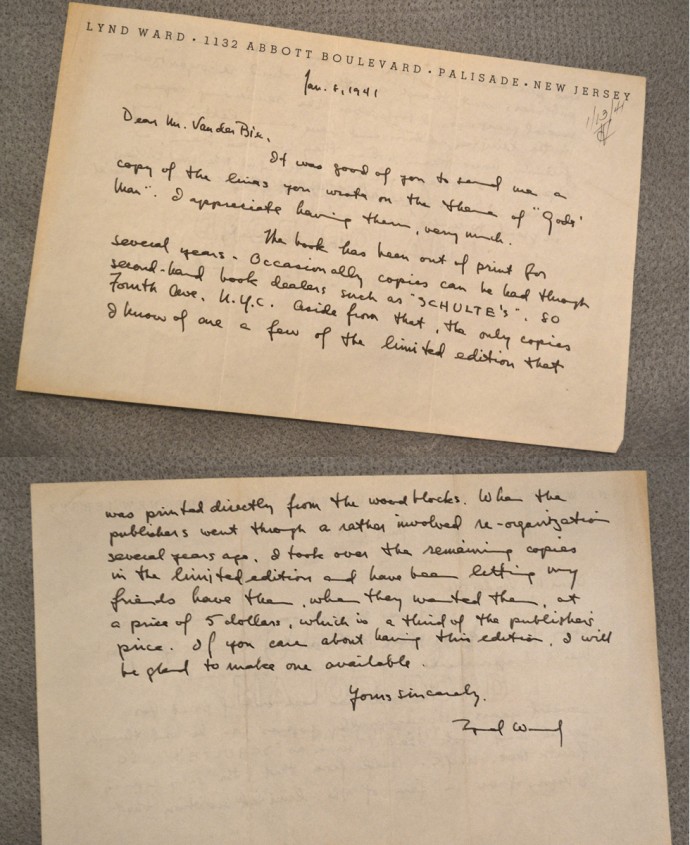 LYND WARD • 1132 ABBOTT BOULEVARD • PALISADE • NEW JERSEY
Jan. 8, 1941
1/13/41
Dear Mr. Van der Bie,
It was good of you to send me a
copy of the lines you wrote on the theme of "Gods'
Man". I appreciate having them, very much.
The book has been out of print for
several years. Occasionally copies can be had through
second-hand book dealers such as "SCHULTE'S". 80
Fourth Ave. N.Y.C. Aside from that, the only copies
I know of are a few of the limited edition that
was printed directly from the wood blocks. When the
publishers went through a rather involved re-organization
several years ago, I took over the remaining copies
in the limited edition and have been letting my
friends have them, when they wanted them, at
a price of 5 dollars, which is a third of the publisher's
price. If you care about having this edition, I will
be glad to make one available.
Yours sincerely,
Lynd Ward